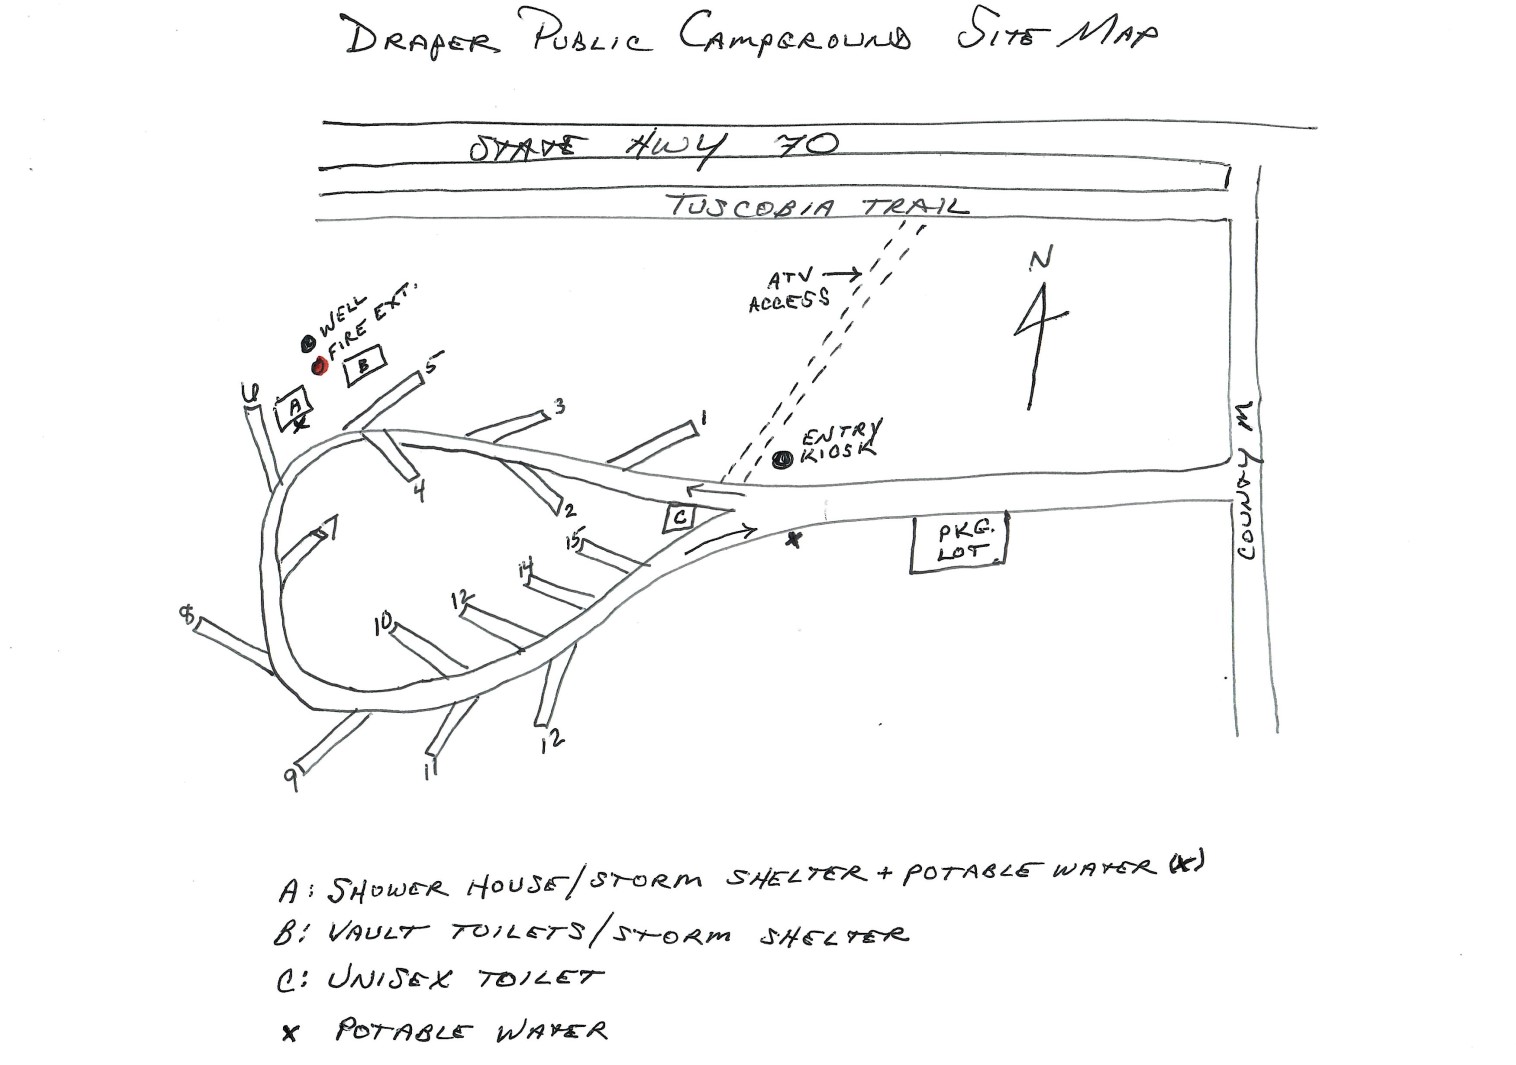 DRAPER PUBLIC CAMPGROUND SITE MAP
STATE HWY 70
TUSCOBIA TRAIL
N
ATV
ACCESS
WELL
FIRE EXT.
B
A
x
5
6
3
1
ENTRY
KIOSK
4
2
C
15
x
PKG.
LOT
COUNTY M
7
14
12
10
8
12
11
9
A: SHOWER HOUSE/STORM SHELTER + POTABLE WATER (x)
B: VAULT TOILETS/STORM SHELTER
C: UNISEX TOILET
x POTABLE WATER